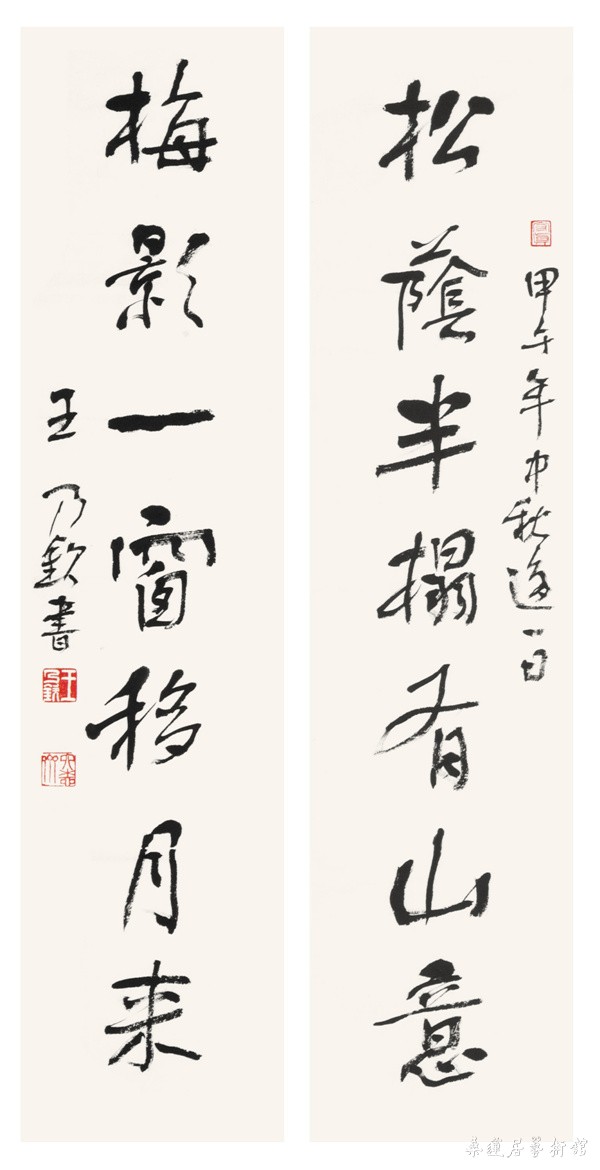 甲午年中秋後一日
松蔭半榻有山意
梅影一窗移月来
王乃欽書
王乃欽
桑蓮居藝術館